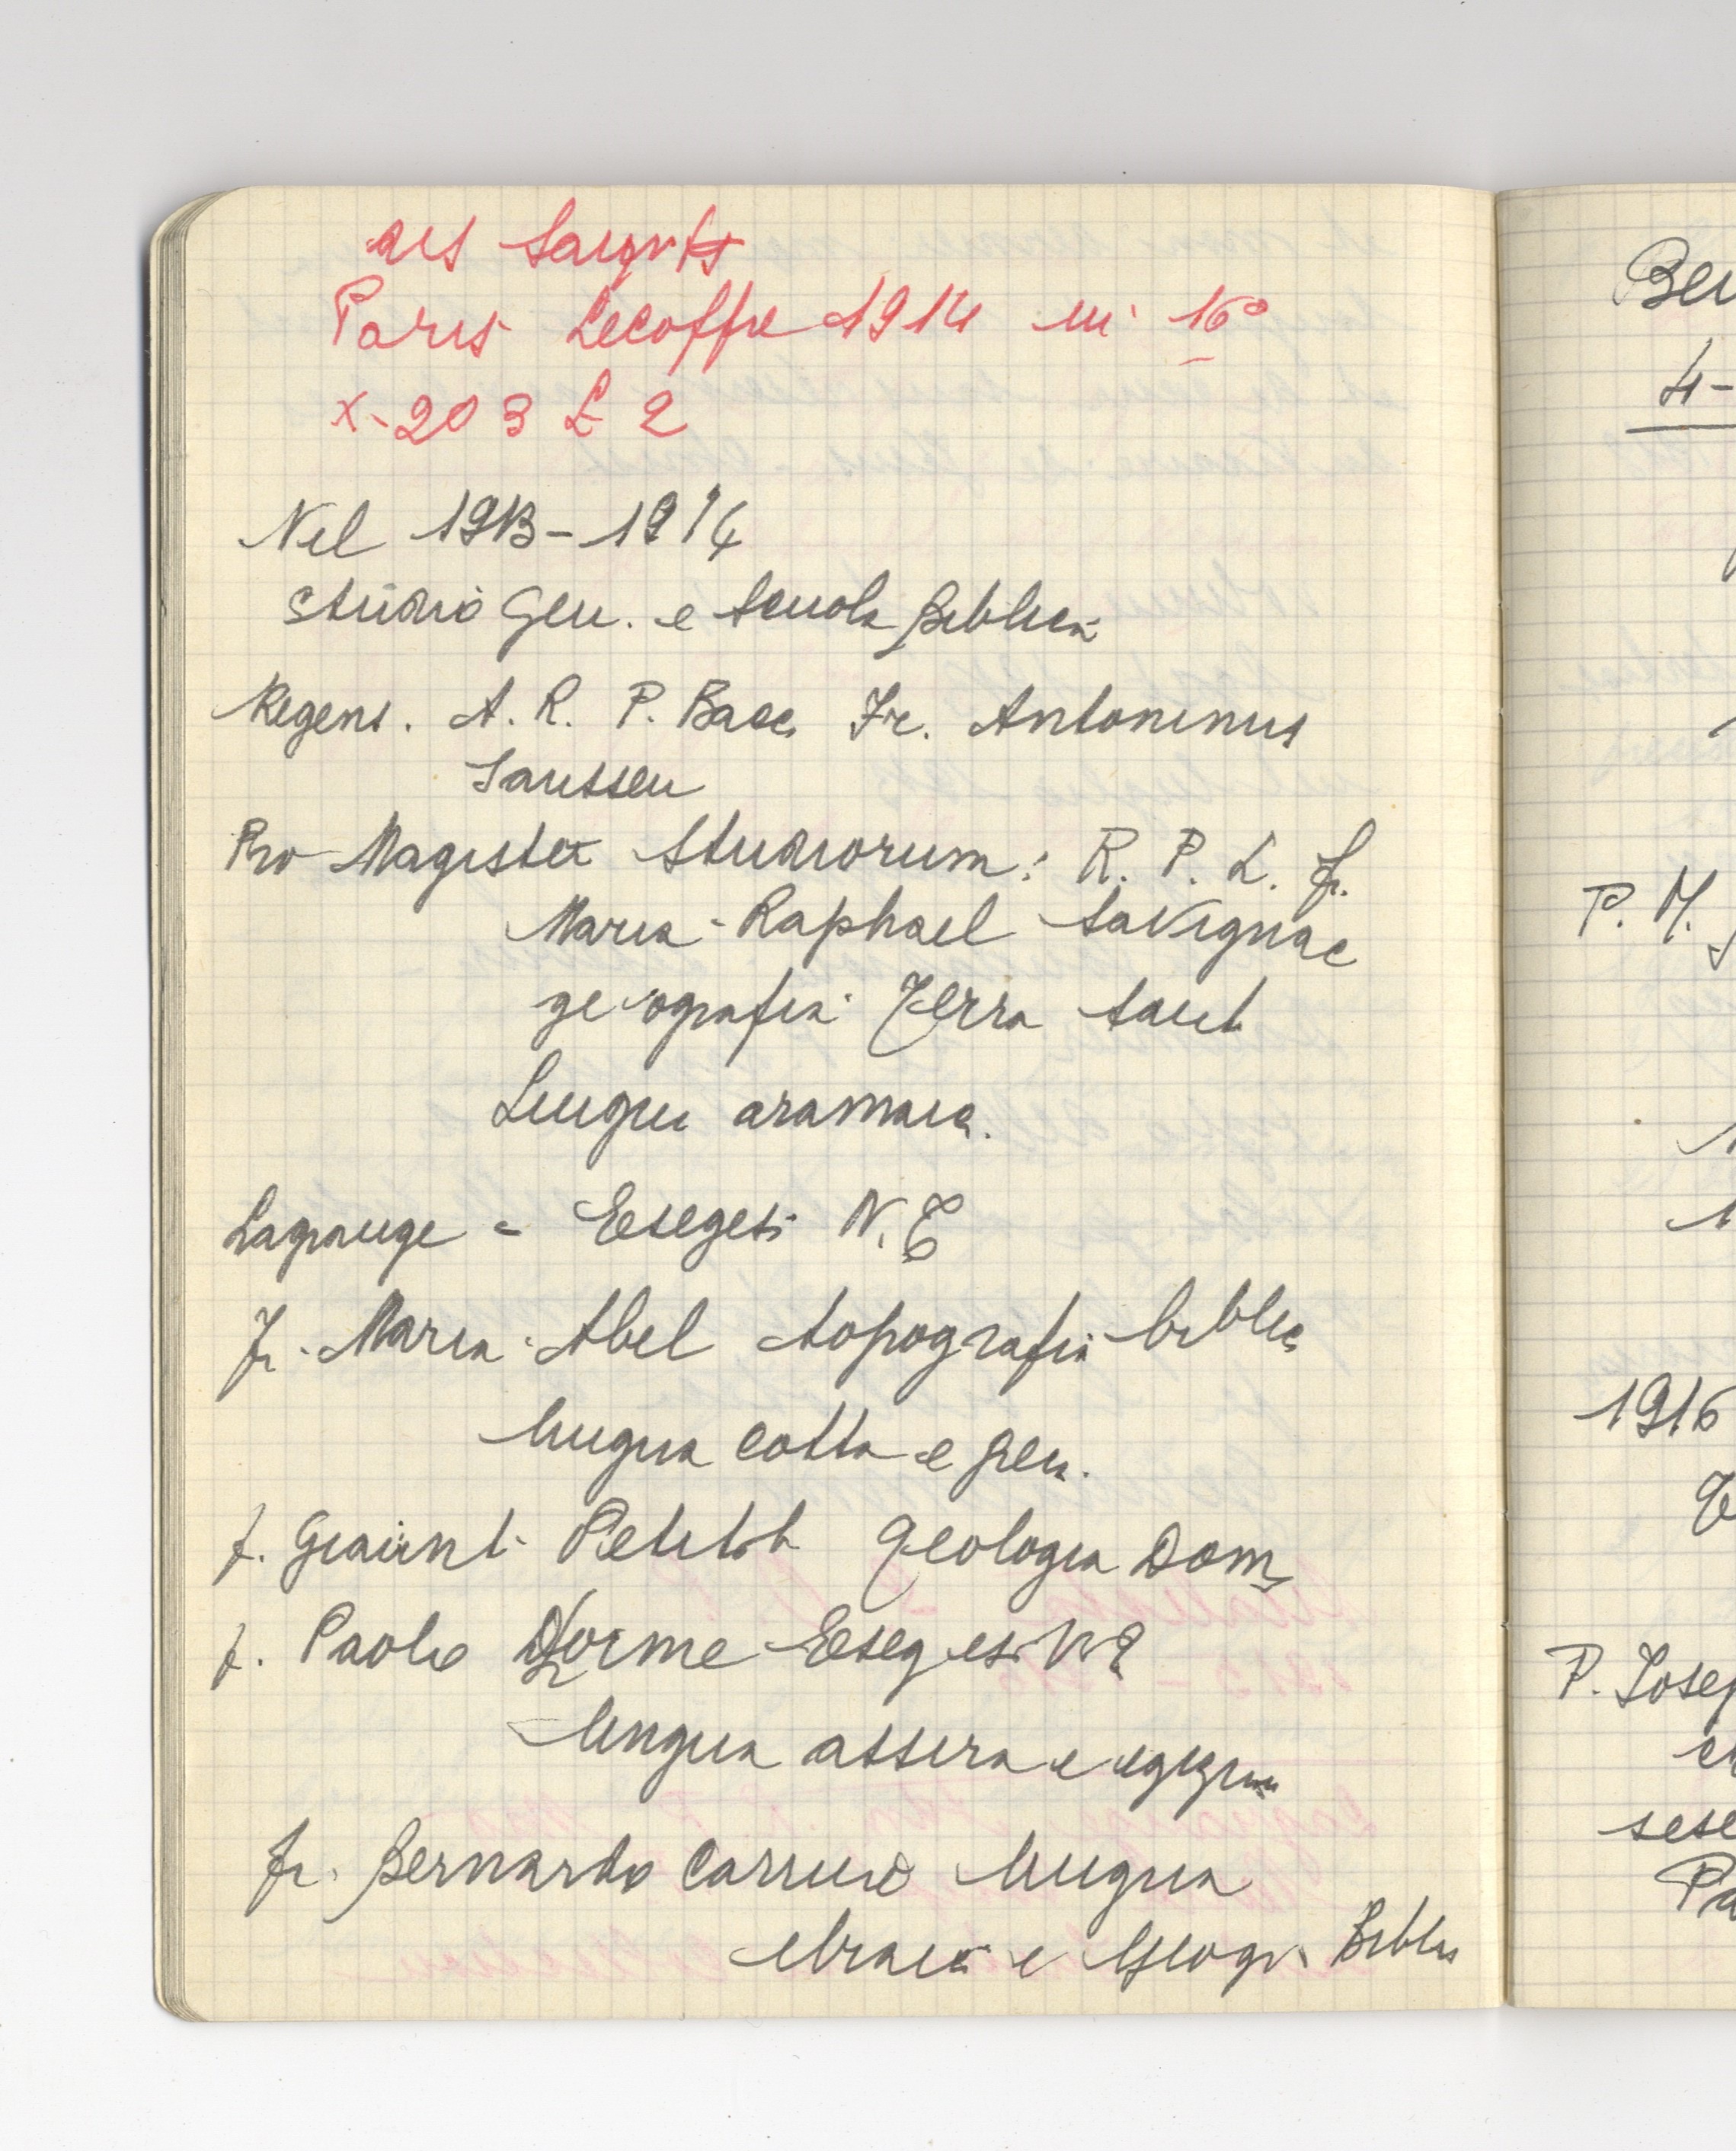 des Saints
Paris Lecoffre 1914 in 16°
X-203 £ 2
Nel 1913-1914
Studio Gen. e Scuola Biblica
Regens. A. R. P. Bacc. Fr. Antoninus
Janssen
Pro Magister Studiorum: R. P. L. fr.
Maria-Raphael Savignac
geografia Terra Sant
Lingu aramaic.
Lagrange = Esegesi N.T
Fr. Maria Abel topografia biblic
lingua cotta e
f. Giacint Petitot geologia Dom
f. Paolo Dhorme Esegesi V T
lingua assira e egizian
fr. Bernardo Carriere lingua
ebraic e Geogr. Biblic
Be
4-
P. M.
1
1
1916
P. Josep
sese
Pa